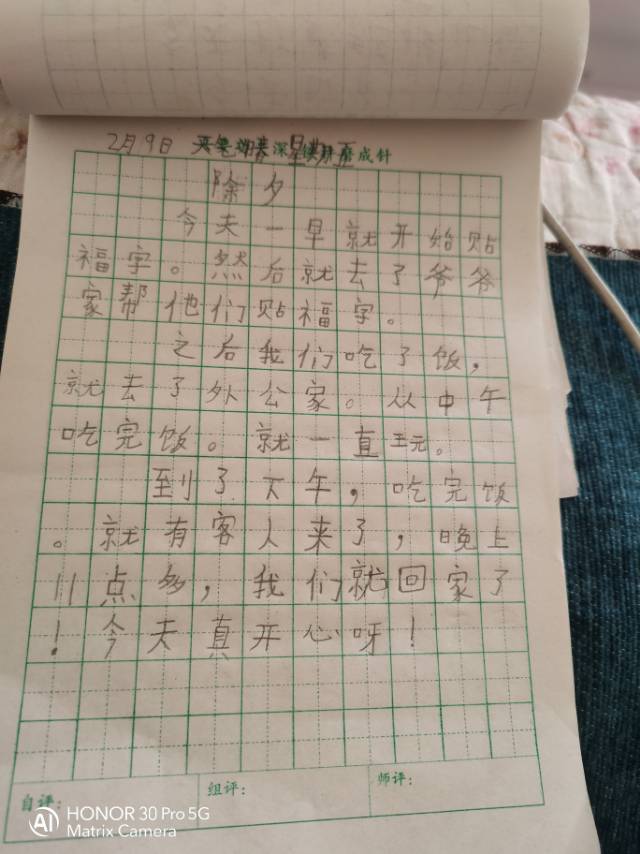 2月9日 星期五
除夕
今天一早就开始贴
福字。然后就去了爷爷
家帮他们贴福字。
之后我们吃了饭，
就去了外公家。从中午
吃完饭。就一直玩。
到了下午，吃完饭
。就有客人来了，晚上
11点多，我们就回家了
！今天真开心呀！
自评：
组评：
师评：
HONOR 30 Pro 5G
Matrix Camera